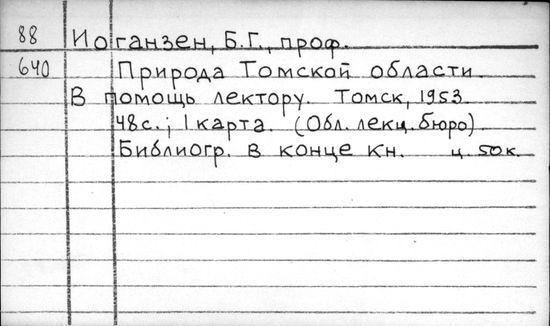 88 Иоганзен, Б.Г., проф.
640 Природа Томской области.
В помощь лектору. Томск, 1953.
48 с.; 1 карта. (Обл. лекц. бюро)
Библиогр. в конце кн. ц. 50 к.